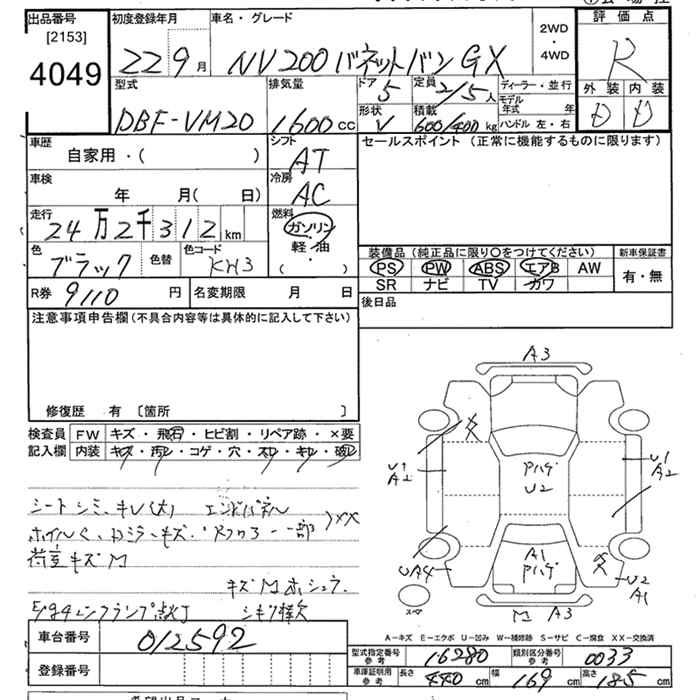 出品番号
[2153]
4049
初度登録年月
22 9月
車名・グレード
NV200 バネットバン GX
2WD
・
4WD
評価点
R
外装 内装
D D
型式
DBF-VM20
排気量
1600cc
ドア
5
定員
2/5人
形状
V
積載
600/400kg
ディーラー・並行
モデル年式 年
ハンドル 左・右
車歴
自家用・( )
シフト
AT
セールスポイント (正常に機能するものに限ります)
車検
年 月( 日)
冷房
AC
走行
24万2千312km
燃料
ガソリン
軽・油
( )
色
ブラック
色替
色コード
KH3
装備品(純正品に限り○をつけてください)
PS PW ABS エアB AW
SR ナビ TV カワ
新車保証書
有・無
R券 9110円
名変期限 月 日
後日品
注意事項申告欄(不具合内容等は具体的に記入して下さい)
修復歴 有 [箇所 ]
検査員
記入欄
FW キズ・飛石・ヒビ割・リペア跡・×要
内装 キズ・汚レ・コゲ・穴・スレ・キレ・破レ
シート シミ、キレ(大) エンドパネル
XX
荷室キズM
キズM ホシュウ
A3
U1
A2
U1
A2
Pハゲ
U2
A1
Pハゲ
UA4
U2
A1
M A3
スペア
A-キズ E-エクボ U-凹み W-補修跡 S-サビ C-腐食 XX-交換済
車台番号 012592
登録番号
型式指定番号
参考
16280
類別区分番号
参考
0033
車庫証明用
参考
長さ 440cm 幅 169cm 高さ 185cm